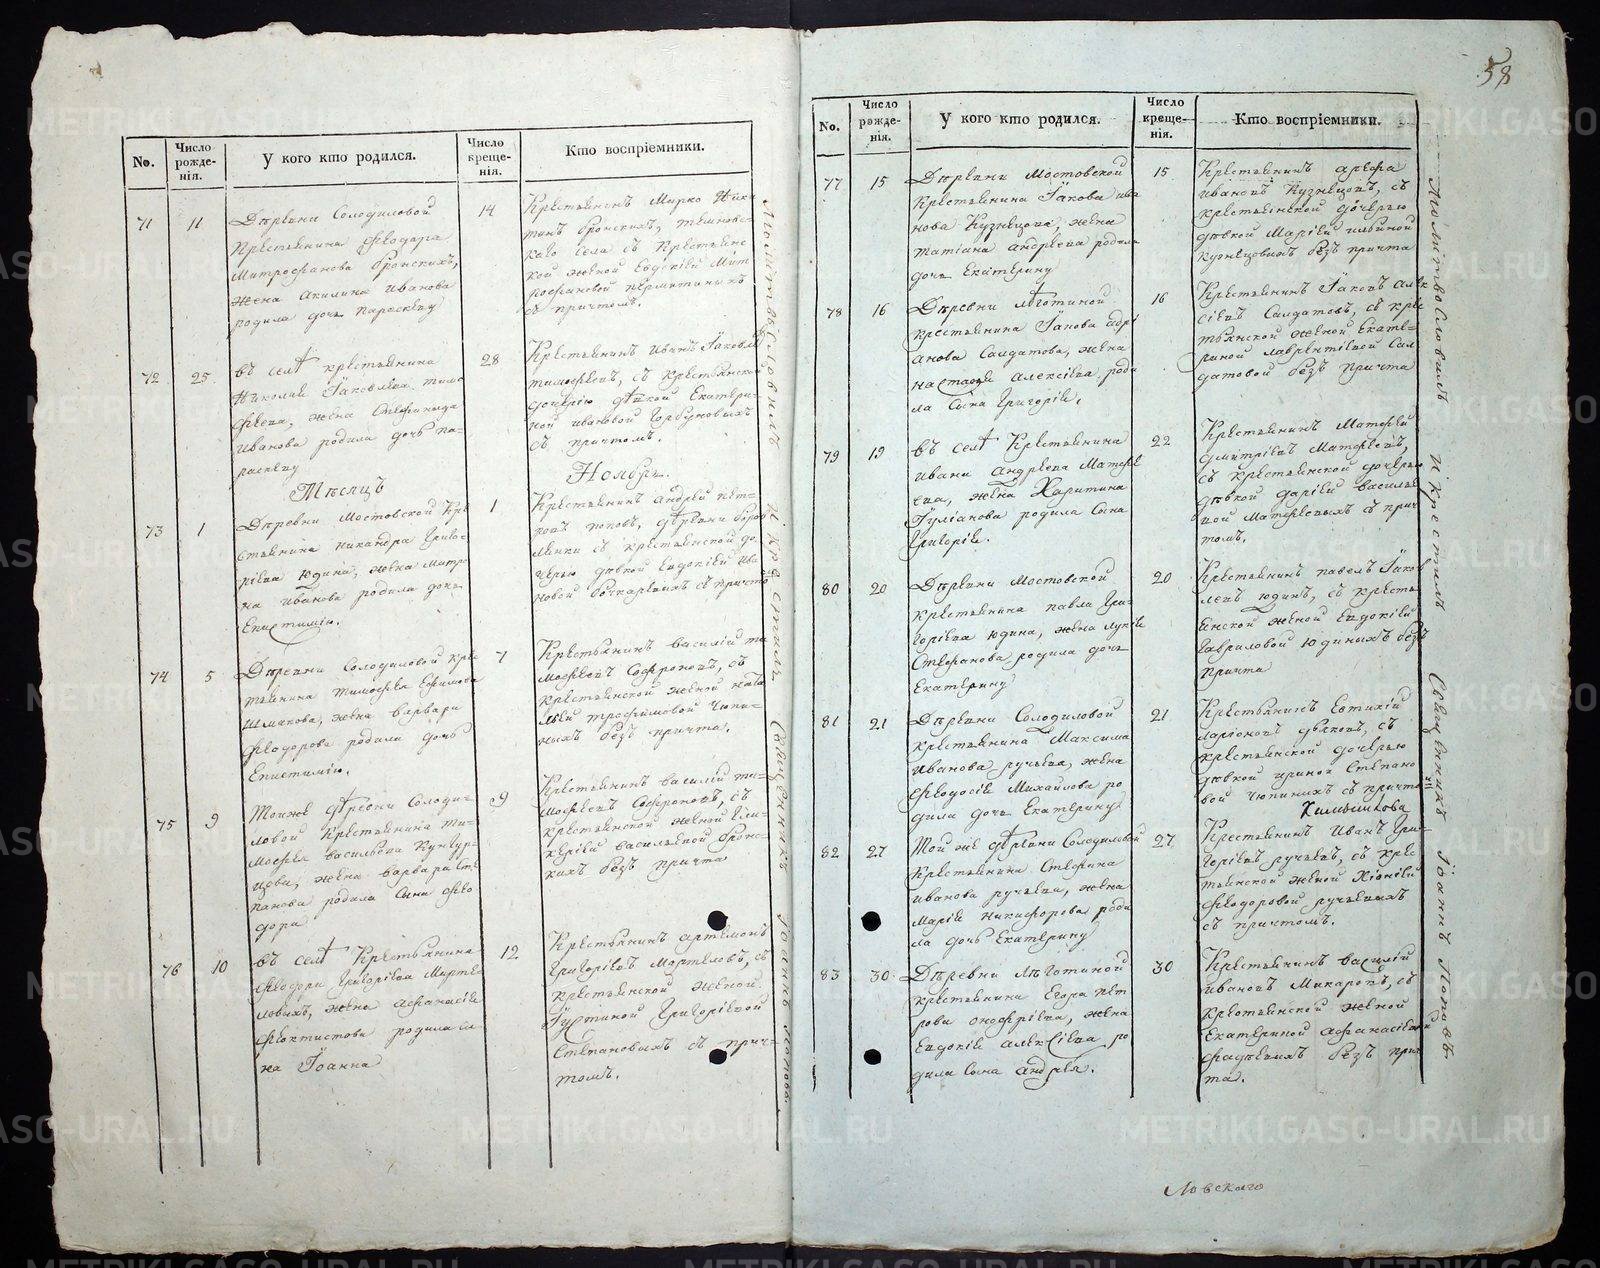 58
No.
Число рожденія.
У кого кто родился.
Число крещенія.
Кто воспріемники.
71
11
Деревни Солодиловой
крестьянина Феодора
Митрофанова Бронскихъ,
жена Акилина Иванова
родила дочь Параскеву
14
72
25
въ селѣ крестьянина
Николая Іаковлева Тимо
феева, жена Стефанида
Иванова родила дочь Па-
раскеву
28
Крестьянинъ Иванъ Іаковлевъ
Тимофеевъ, съ крестьянской
дочерію дѣвкой Екатери-
ной Ивановой Горбуновыхъ
съ причтомъ.
Мѣсяцъ
Ноябрь.
73
1
Деревни Мостовской кре
стьянина Никандра Григо
ріева Юдина, жена Матро
на Иванова родила дочь
Епистимію.
1
Крестьянинъ Андрей Пет-
ровъ Поповъ, деревни
съ крестьянской до
черью дѣвкой Евдокіей Ива
новой Бочкаревыхъ съ причто
74
5
Деревни Солодиловой кре
стьянина Тимофея Ефимова
Шмакова, жена Варвара
Феодорова родила дочь
Епистимію.
7
Крестьянинъ Василій Ти
мофеевъ Софроновъ, съ
крестьянской женой Ната
ліей Трофимовой Чюпи-
ныхъ безъ причта.
75
9
Тоиже деревни Солоди
ловой крестьянина Ти-
мофея Васильева Кунгур-
цова, жена Варвара Сте
панова родила сына Фео
дора
9
Крестьянинъ Василій Ти-
мофеевъ Софроновъ, съ
крестьянской женой Гли-
керіей Васильевой Брон-
кихъ безъ причта
76
10
въ селѣ крестьянина
Феодора Григоріева Марте
ловыхъ, жена Афанасія
Феоктистова родила сы
на Іоанна
12
Крестьянинъ Артемонъ
Григоріевъ Мартеловъ, съ
крестьянской женой
Іустиной Григоріевой
Степановыхъ съ прич-
томъ.
Молитвословилъ и крестилъ Священникъ Іоаннъ Попов
No.
Число рожденія.
У кого кто родился.
Число крещенія.
Кто воспріемники.
77
15
Деревни Мостовской
крестьянина Іакова Ива
нова Кузнецова, жена
Татіана Андреева родила
дочь Екатерину
15
Крестьянинъ Арефа
Ивановъ Кузнецовъ, съ
крестьянской дочерью
дѣвкой Маріей Ивановой
Кузнецовыхъ безъ причта
78
16
Деревни Леготиной
крестьянина Іакова Адрі
анова Салдатова, жена
Настасія Алексіева роди
ла сына Григорія,
16
Крестьянинъ Іаковъ Алек
сіевъ Салдатовъ, съ кре
стьянской женой Екате-
риной Лаврентіевой Сал
датовой безъ причта
79
19
въ селѣ крестьянина
Ивана Андреева Матфе
ева, жена Харитина
Іуліанова родила сына
Григорія.
22
Крестьянинъ Матфей
Дмитріевъ Матфеевъ,
съ крестьянской дочерью
дѣвкой Даріей Василье
вой Матфеевыхъ съ прич
томъ.
80
20
Деревни Мостовской
крестьянина Павла Гри-
горіева Юдина, жена Лукія
Стефанова родила дочь
Екатерину
20
Крестьянинъ Павелъ Іаков
левъ Юдинъ, съ кресть
янской женой Евдокіей
Гавриловой Юдиныхъ безъ
причта
81
21
Деревни Солодиловой
крестьянина Максима
Иванова Ручьева, жена
Феодосія Михайлова ро
дила дочь Екатерину
21
Крестьянинъ Евтихій
Ларіоновъ Дьяковъ, съ
крестьянской дочерью
дѣвкой Ириной Степано
вой Чюпиныхъ съ причто
82
27
Той же деревни Солодиловой
крестьянина Стефана
Иванова Ручьева, жена
Марія Никифорова роди
ла дочь Екатерину
27
Крестьянинъ Иванъ Гри-
горіевъ Ручьевъ, съ кре
стьянской женой Хіоніей
Феодоровой Ручьевыхъ
съ причтомъ.
83
30
Деревни Леготиной
крестьянина Егора Пет
рова Онофріева, жена
Евдокія Алексіева ро
дила сына Андрея.
30
Крестьянинъ Василій
Ивановъ Макаровъ, съ
крестьянской женой
Екатериной Афанасіевой
Фадеевыхъ безъ прич
та.
Молитвословилъ и крестилъ Священникъ Іоаннъ Поповъ
ловскаго
METRIKI.GASO-URAL.RU